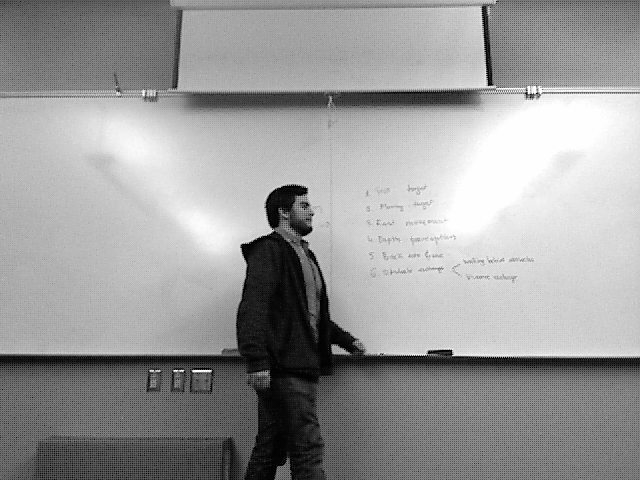 1. Still target
2. Moving target
3. Fast movement
4. Depth perception
5. Back into frame
6. Obstacle
walking behind obstacles